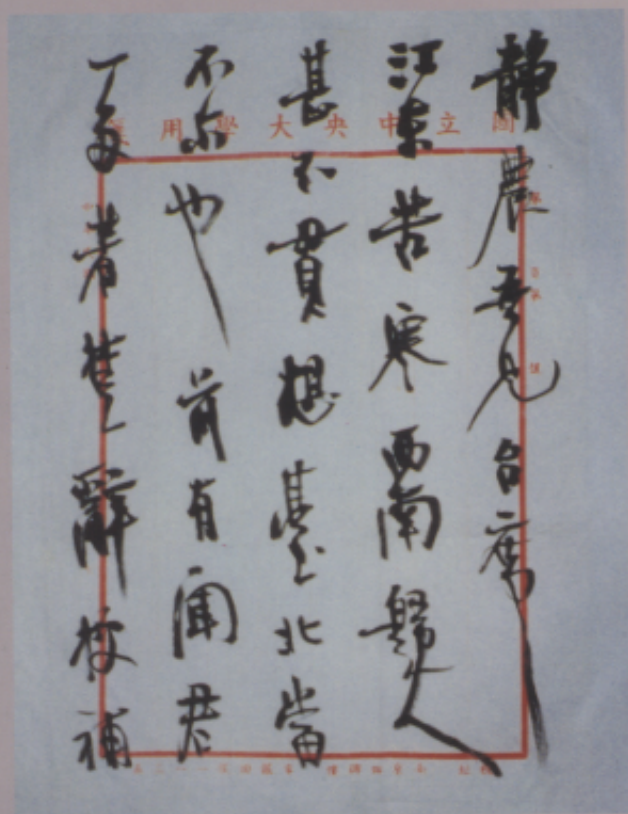 國立中央大學用箋
靜農吾兄台席
江東苦寒西南歸人
甚不貫想臺北當
不尔也前有聞君
一多著楚辭校補